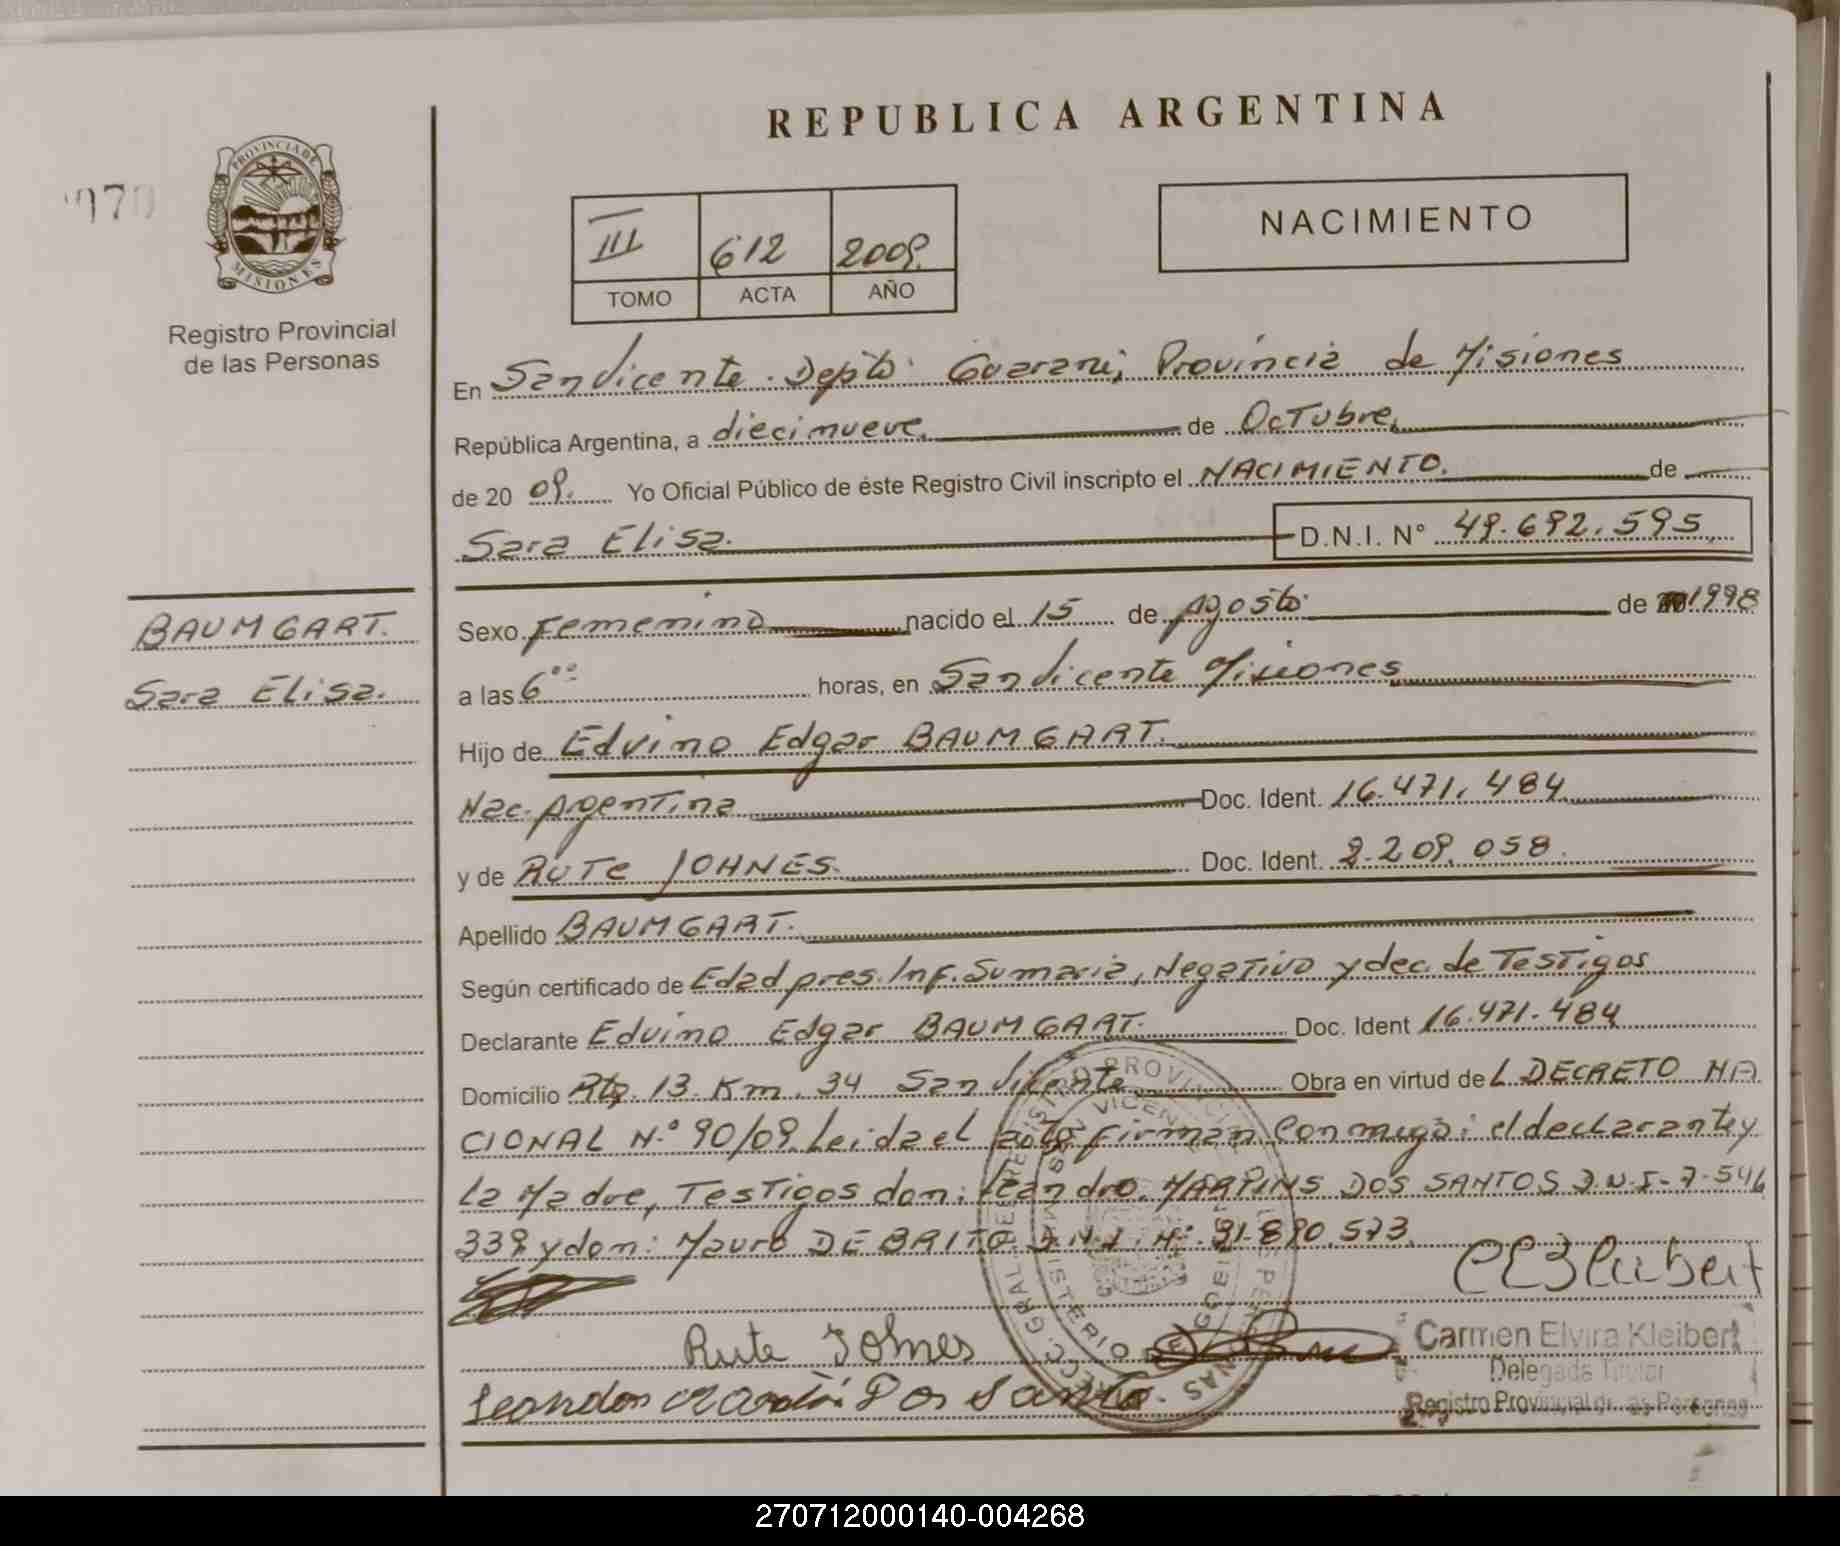 REPUBLICA ARGENTINA
PROVINCIA DE
MISIONES
Registro Provincial
de las Personas
III 612 2009.
TOMO ACTA AÑO
NACIMIENTO
En San Vicente. Depto. Guarani, Provincia de Misiones
República Argentina, a diecinueve de Octubre,
de 20 09. Yo Oficial Público de éste Registro Civil inscripto el NACIMIENTO. de
Sara Elisa. D.N.I. N° 49.692.595
BAUMGART.
Sara Elisa.
Sexo femenino nacido el 15 de Agosto de 1998
a las 6°° horas, en San Vicente Misiones
Hijo de Edvino Edgar BAUMGART.
Nac. Argentina Doc. Ident. 16.471.484
y de RUTE JOHNES. Doc. Ident. 2.209.058.
Apellido BAUMGART.
Según certificado de Edad pres. Inf. Sumaria, Negativo y dec. de Testigos
Declarante Edvino Edgar BAUMGART. Doc. Ident 16.471.484
Domicilio Rta. 13. Km. 34 San Vicente Obra en virtud de L DECRETO NA
CIONAL N.° 90/09. Leida el acta firman Conmigo: el declarante y
la Madre, Testigos don: Leandro MARTINS DOS SANTOS D.N.I-7.546
339 y don: Mauro DE BRITO D.N.I. N°. 31.890.573.
Rute Johnes
Carmen Elvira Kleibert
Delegada Titular
Registro Provincial de las Personas
270712000140-004268